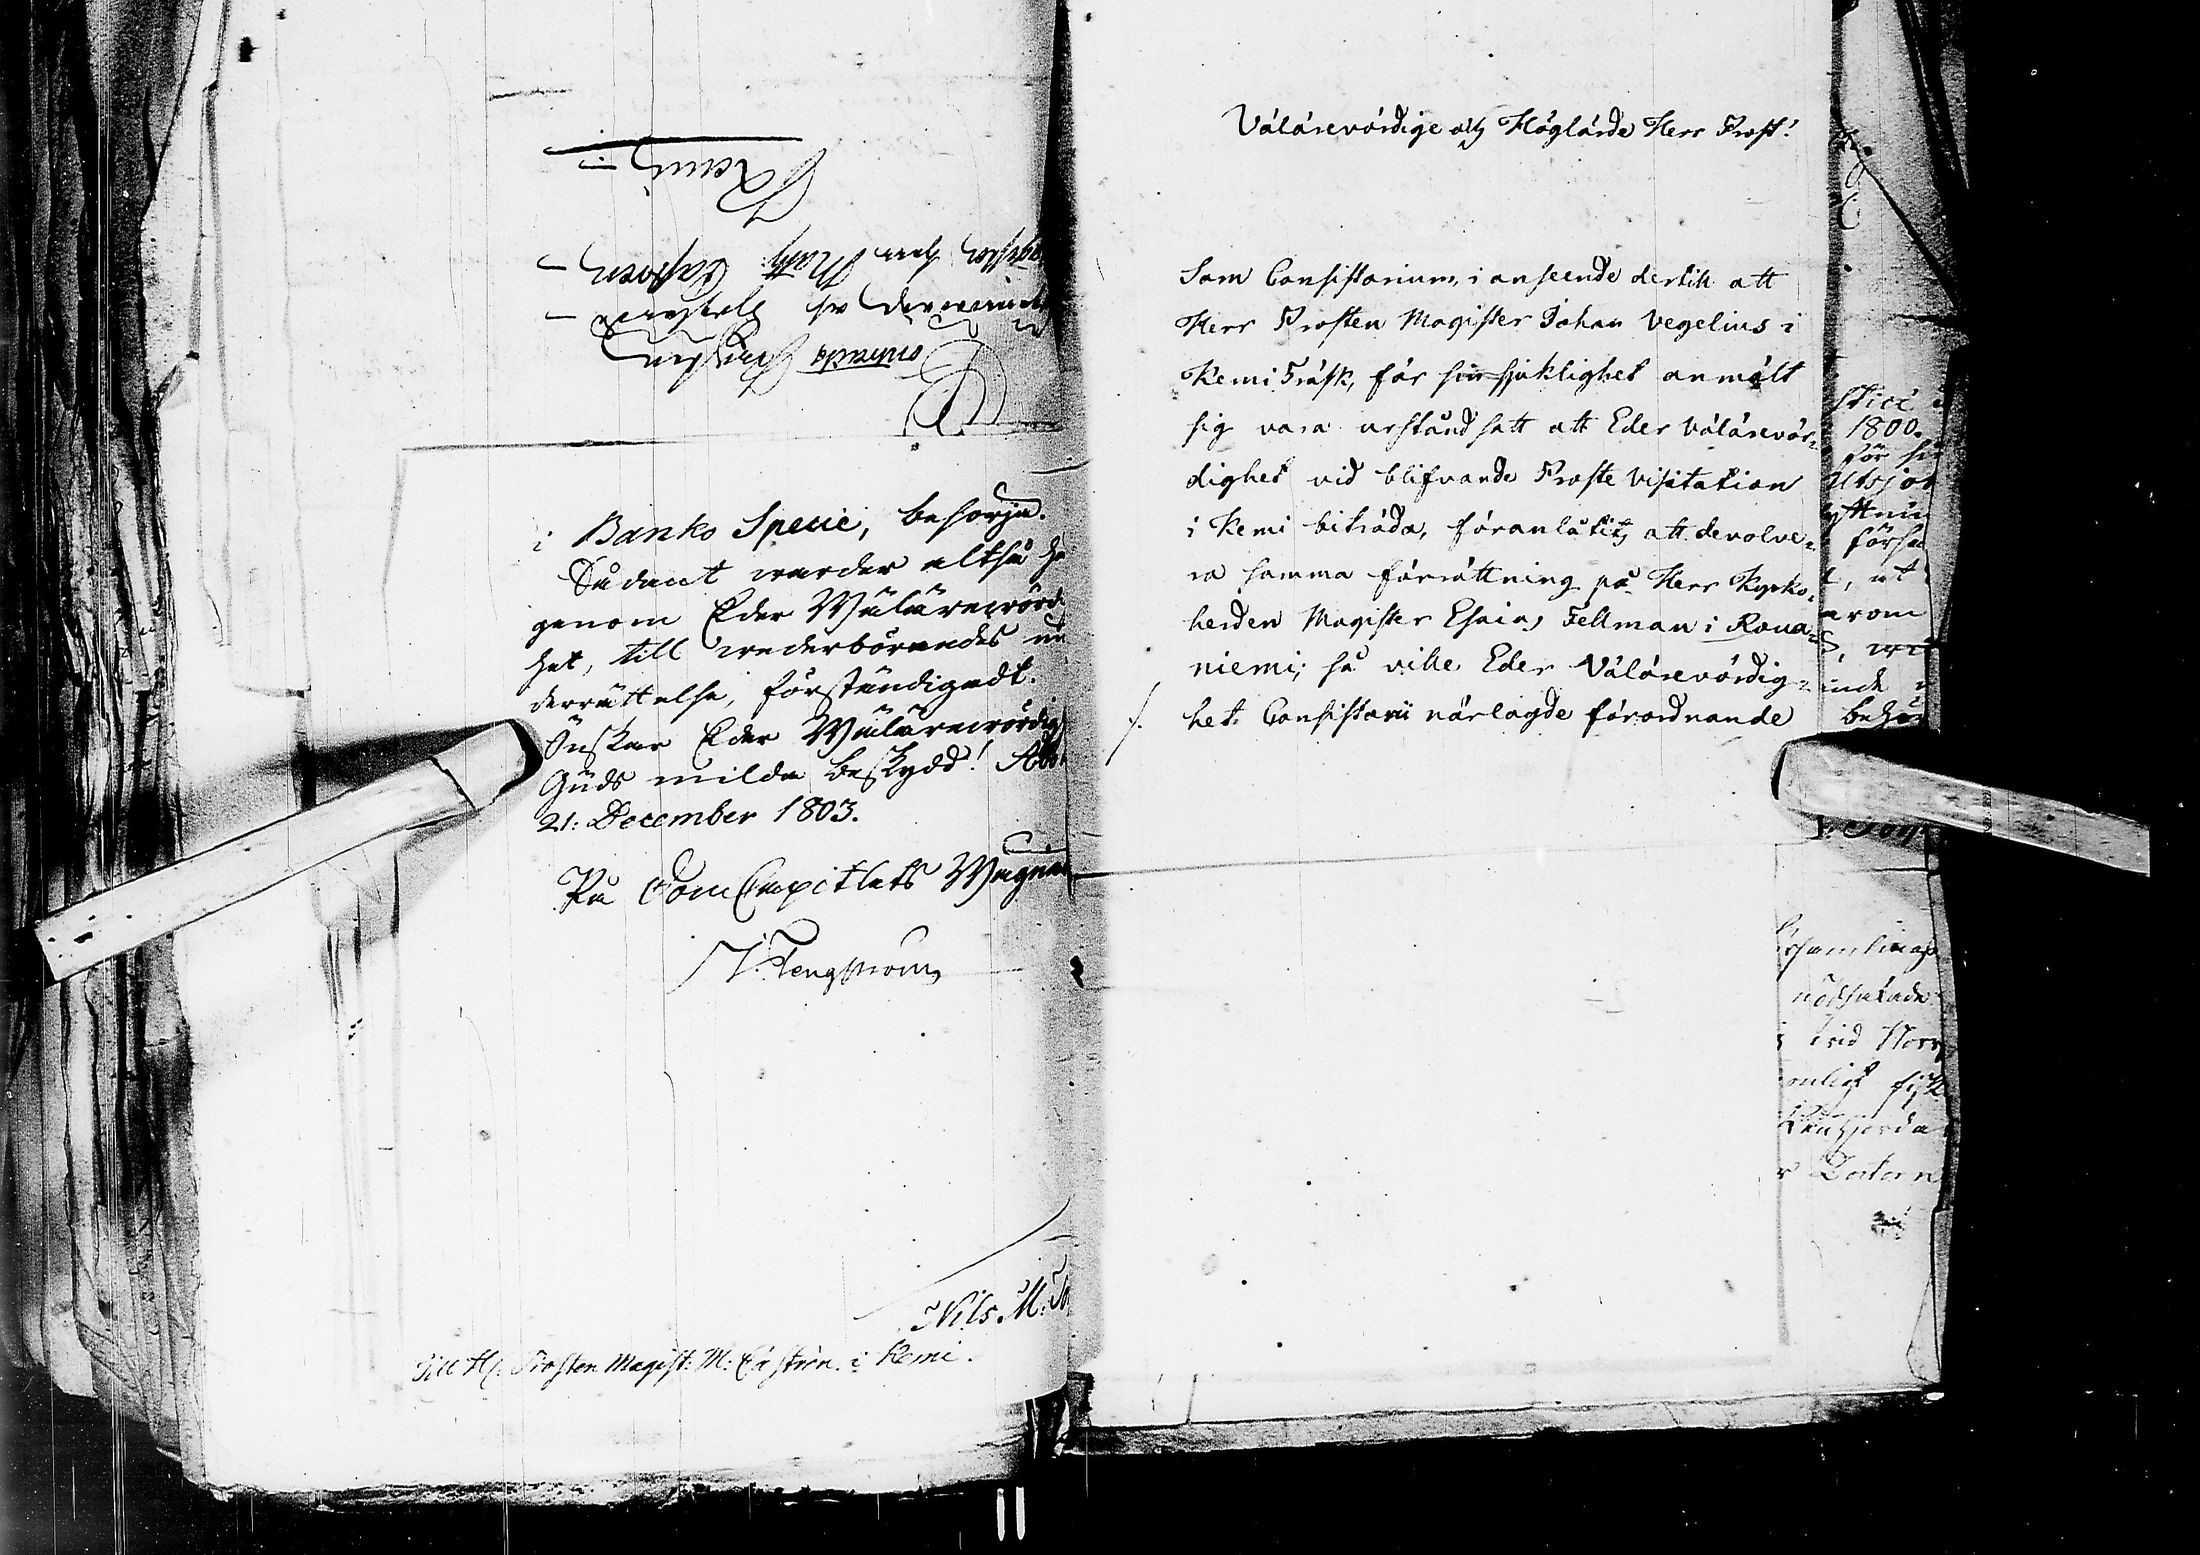 i Banko Specie, besörja.
Sådant warder altså
genom Eder Wälärewörd
het, till wederbörandes un
derrättelse, förständigadt.
Önskar Eder Wälärewördig
Guds milda beskydd! Åbo
21: December 1803.
På DomCapitlets Wägnar
J. Tengström
Nils M:
Till H. Prosten Magist: M: Castrén i Kemi.
Kemi
Herr Matth Castrén
Wälärewördige och Höglärde Herr Prost!
Som Consistorium, i anseende dertill att
Herr Prosten Magister Johan Vegelius i
Kemi Träsk, för sin sjuklighet anmält
sig vara urståndsatt att Eder Välärevör-
dighet vid blifvande Proste Visitation
i Kemi biträda, föranlåtits att devolve-
ra samma förrättning på Herr Kyrko-
herden Magister Esaias Fellman i Rova-
niemi; så ville Eder Välärevördig-
het Consistorii närlagde förordnande
stici
1800.
för
Utsjo
yttnin
förs
, at
arom
inde
behör
rsamlings
nödsakade
vid Norr
onligt fisk
r Doctorn